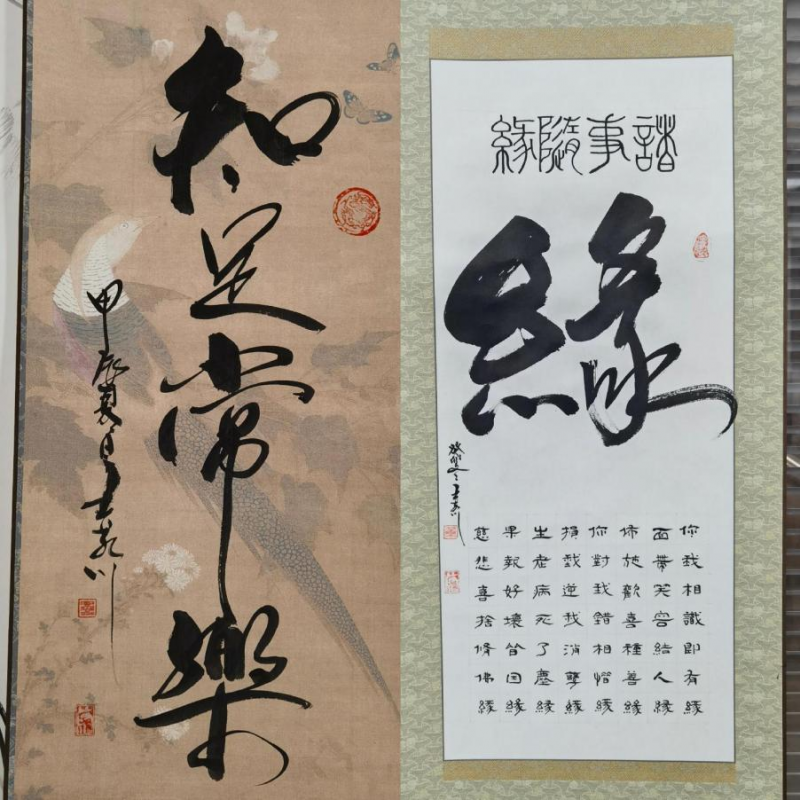 知足常樂
甲辰夏
川
諸事隨緣
緣
癸卯冬
川
你我相識即有緣
面帶笑容給人緣
佈施歡喜種善緣
你對我錯相惜緣
損我逆我消孽緣
生老病死了塵緣
果報好壞皆因緣
慈悲喜捨修佛緣